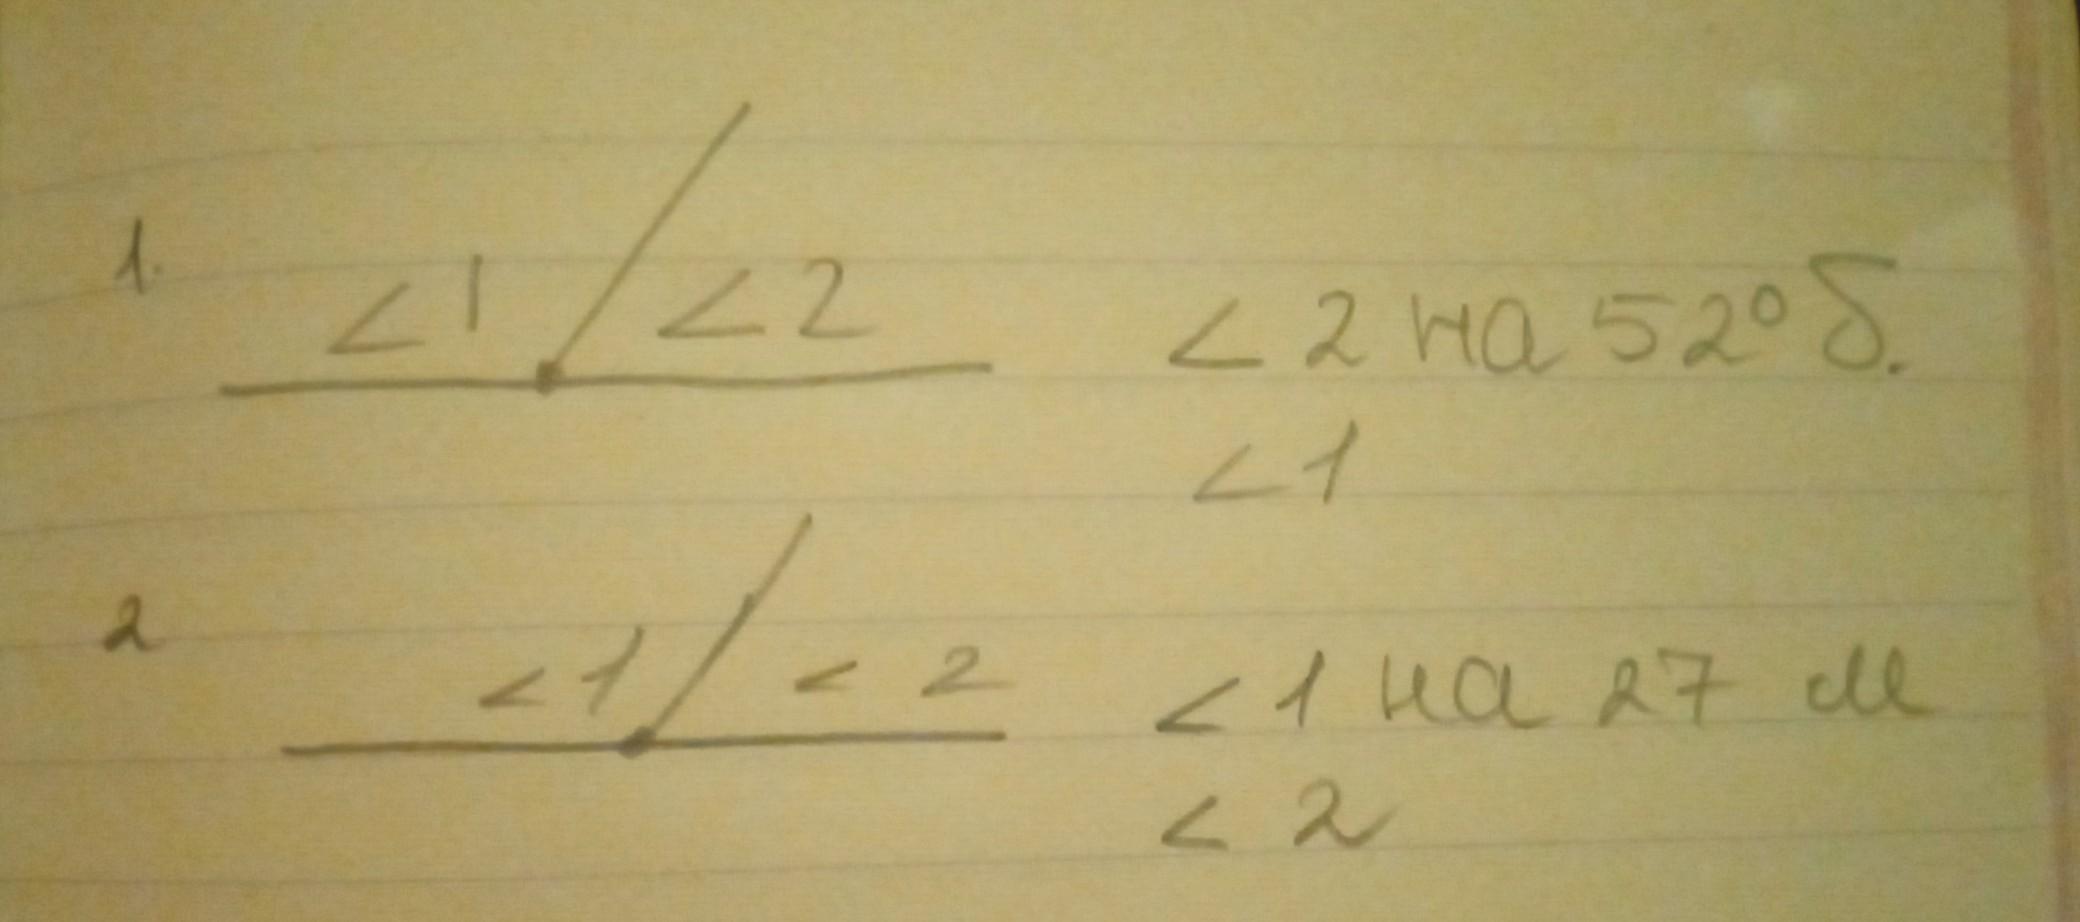 1.
<1 <2
<2 на 52° б.
<1
2
<1 < 2
<1 на 27 м
< 2